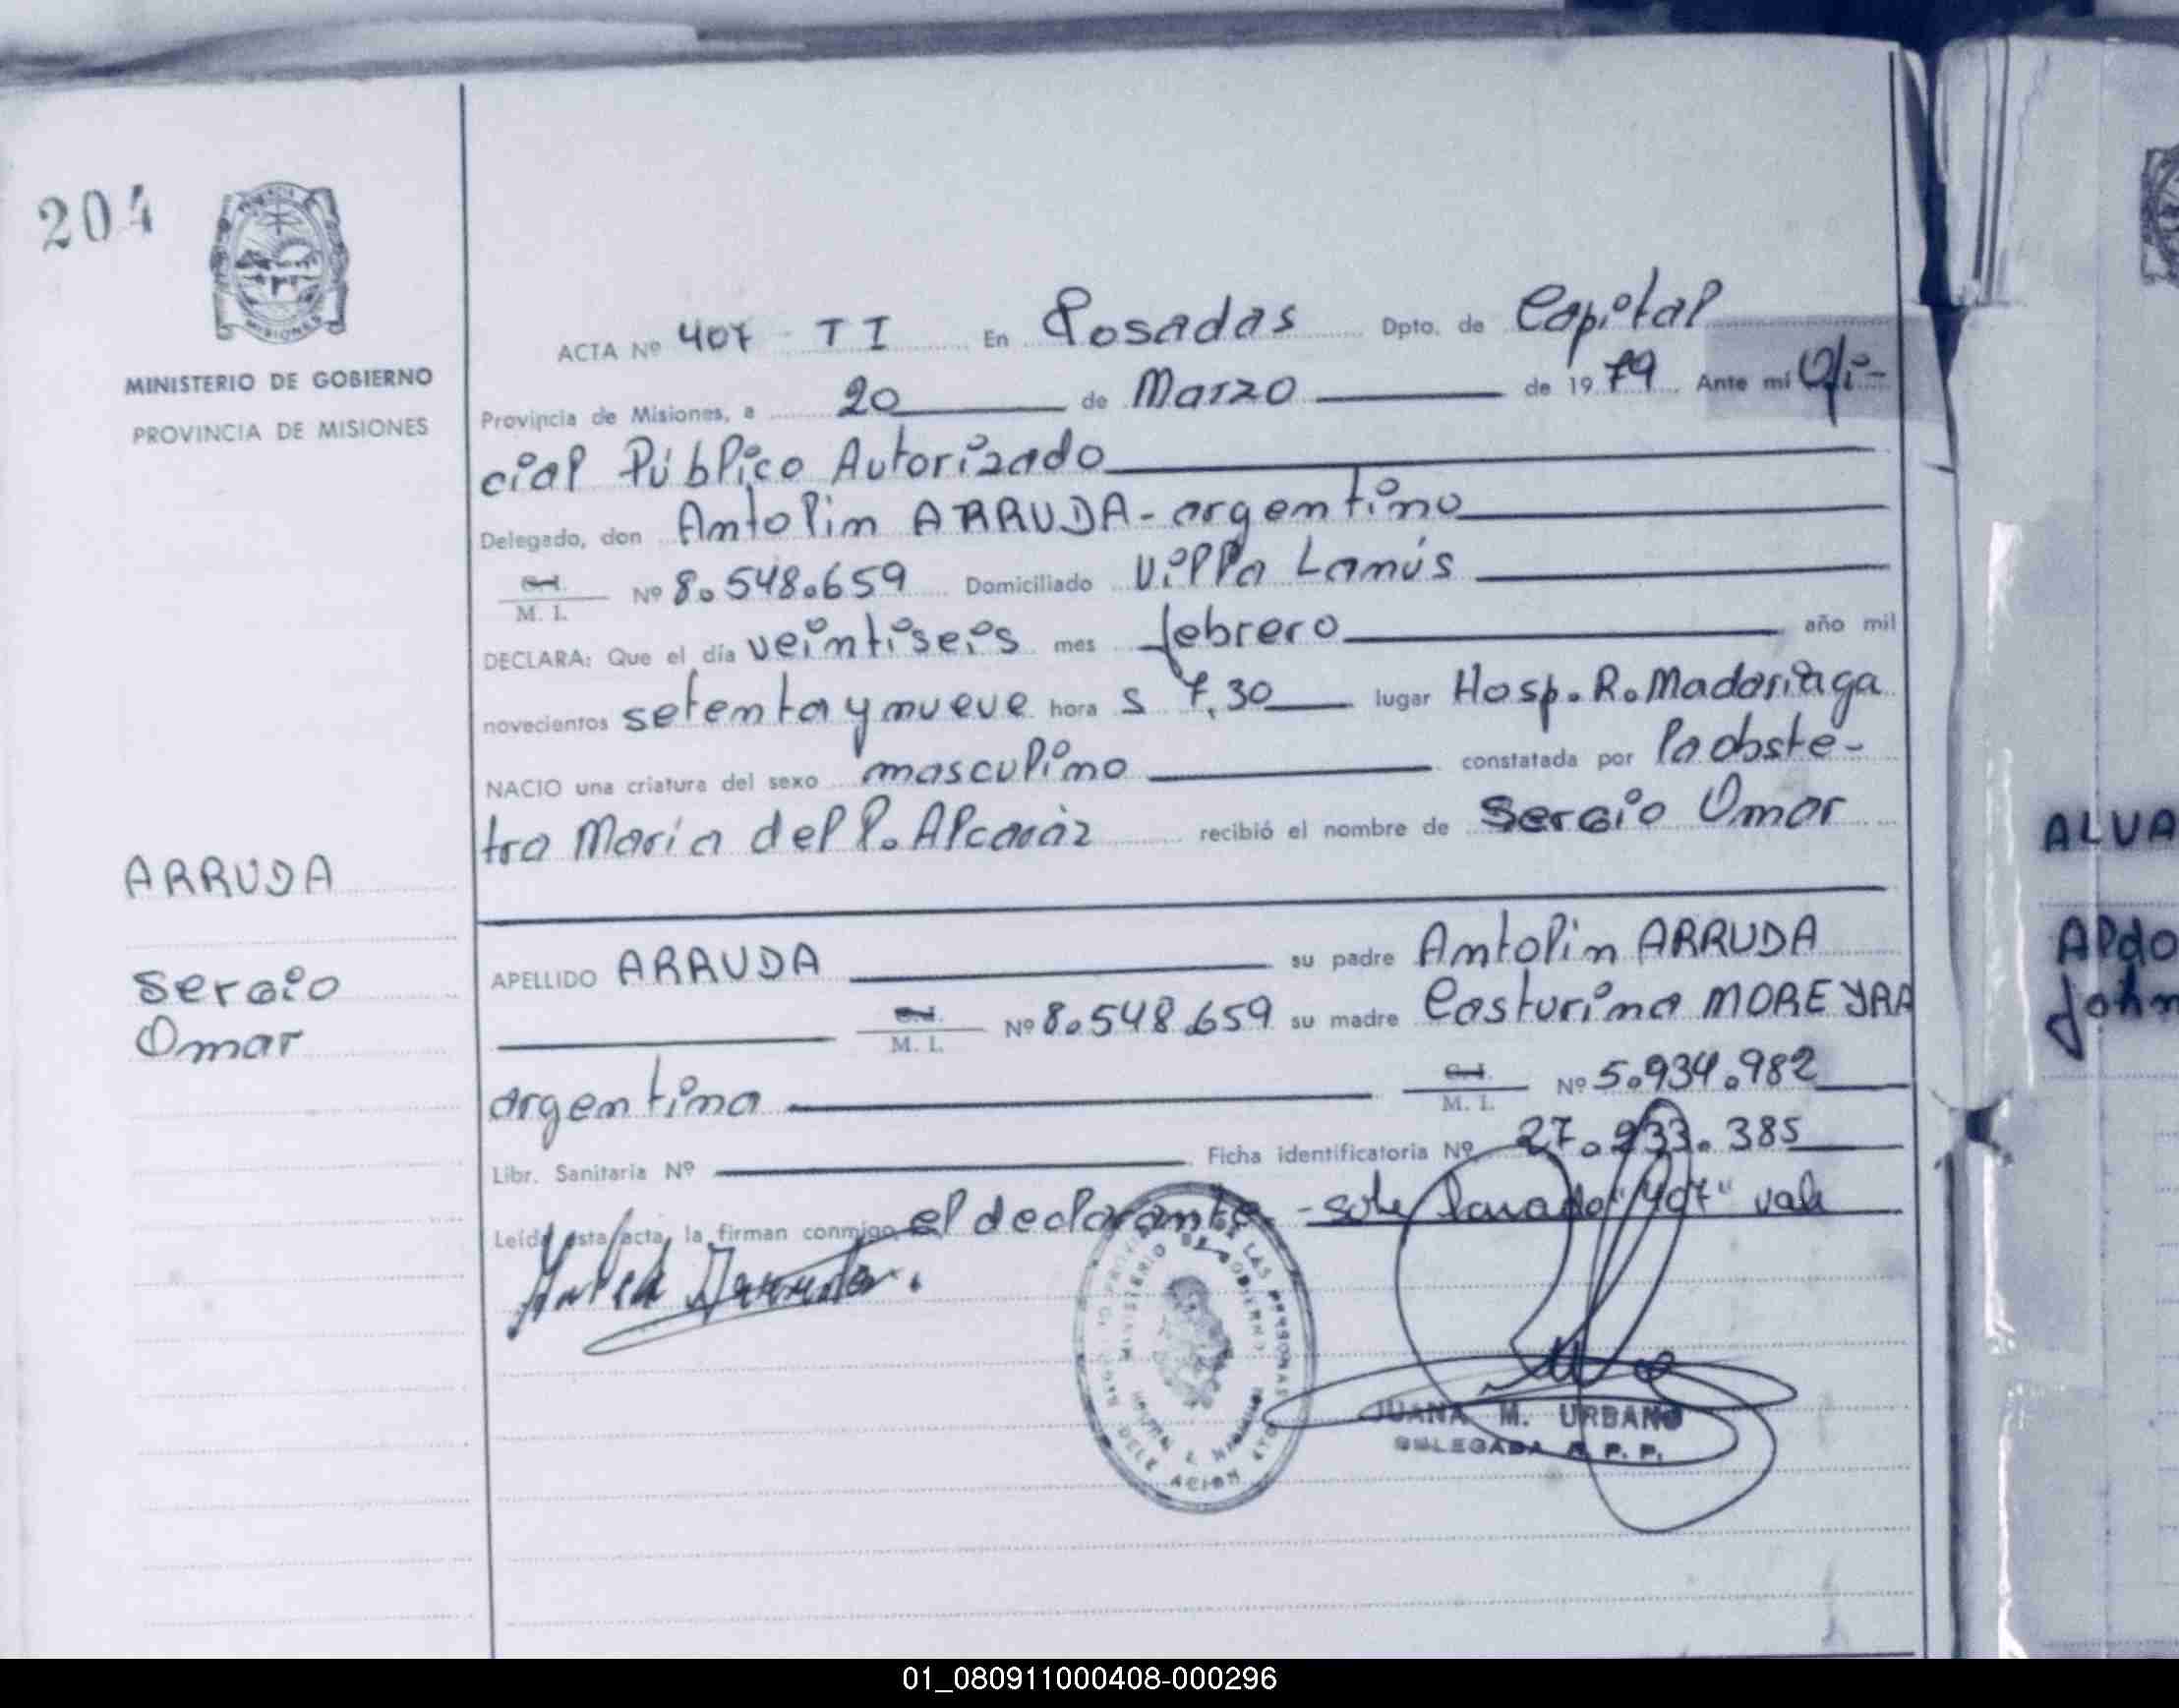 204
MISIONES
MINISTERIO DE GOBIERNO
PROVINCIA DE MISIONES
ACTA Nº 407 - T I En Posadas Dpto. de Capital
Provincia de Misiones, a 20 de Marzo de 1979 Ante mí Ofi-
cial Público Autorizado
Delegado, don Antolin ARRUDA - argentino
C.I.
M. I. Nº 8.548.659 Domiciliado Villa Lanús
DECLARA: Que el día veintiseis mes febrero año mil
novecientos setenta y nueve hora s 7,30 lugar Hosp. R. Madariaga
NACIO una criatura del sexo masculino constatada por la obste-
tra Maria del P. Alcaráz recibió el nombre de Sergio Omar
ARRUDA
Sergio
Omar
APELLIDO ARRUDA su padre Antolin ARRUDA
C.I.
M. I. Nº 8.548.659 su madre Casturina MOREYRA
argentina C.I.
M. I. Nº 5.934.982
Libr. Sanitaria Nº Ficha identificatoria Nº 27.233.385
Leída esta acta, la firman conmigo el declarante. - sobre lavado "407" vale
MINISTERIO DE GOBIERNO
LAS PERSONAS
DELEGACION
JUANA M. URBANO
DELEGADA R. P. P.
ALVA
Aldo
John
01_080911000408-000296